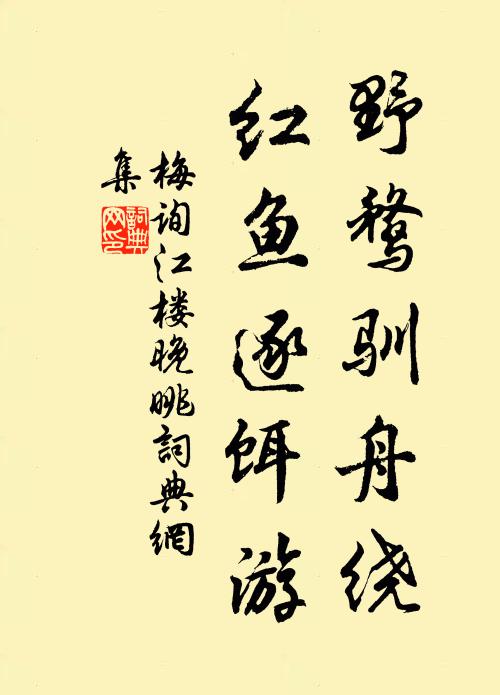 野鹜驯舟绕
红鱼逐饵游
梅询江楼晚眺詞典網
集
詞典
网印